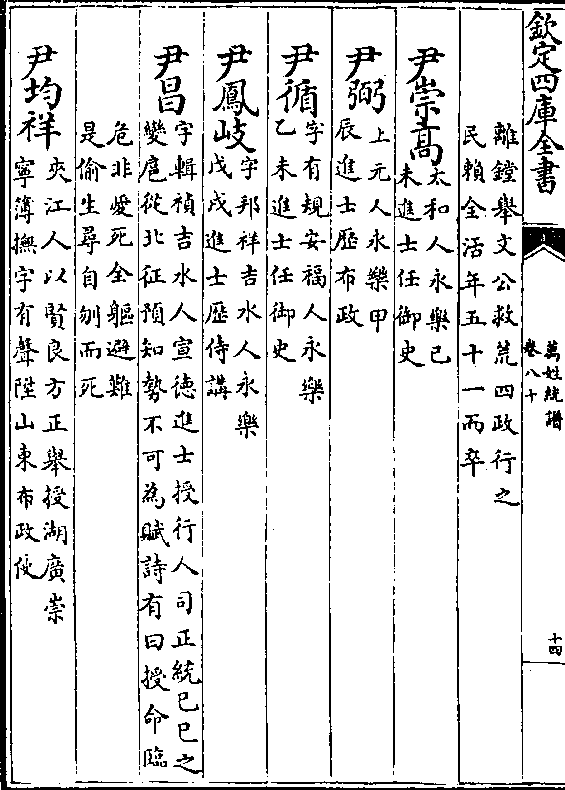 欽定四庫全書
萬姓統譜
卷八十
十四
離鏜舉文公救荒四政行之
民賴全活年五十一而卒
尹崇高
太和人永樂己
未進士任御史
尹弼
上元人永樂甲
辰進士歷布政
尹循
字有規安福人永樂
乙未進士任御史
尹鳳岐
字邦祥吉水人永樂
戊戌進士歷侍講
尹昌
字輯禎吉水人宣德進士授行人司正統已巳之
變扈從北征預知勢不可為賦詩有曰授命臨
危非愛死全軀避難
是偷生尋自刎而死
尹均祥
夾江人以賢良方正舉授湖廣崇
寧簿撫字有聲陞山東布政使